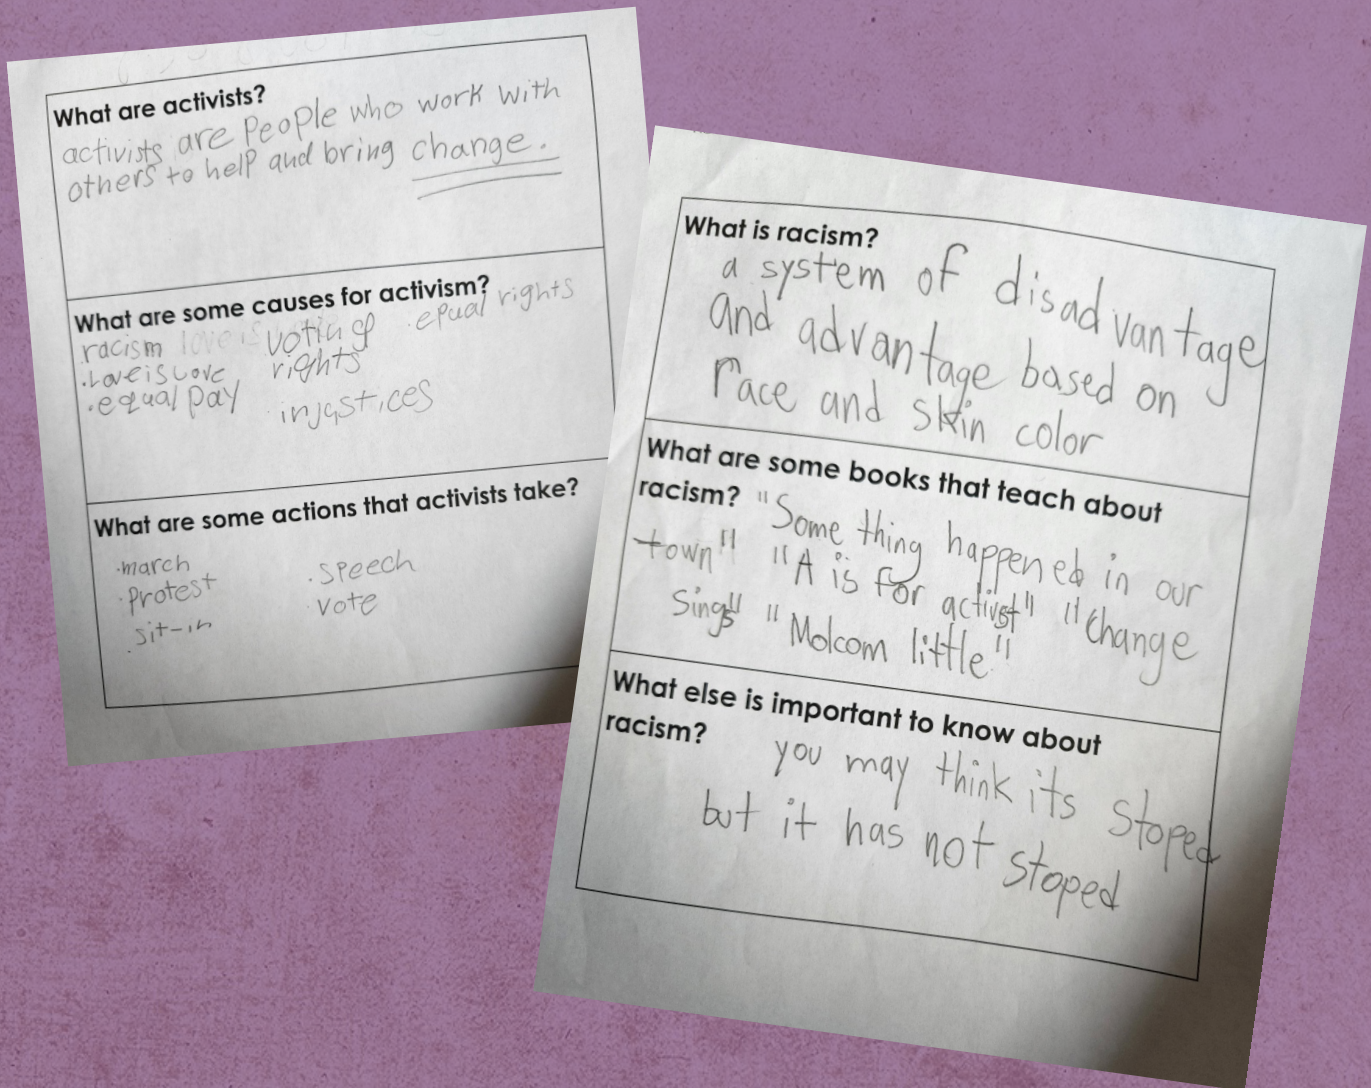 What are activists?
activists are people who work with
others to help and bring change.
What are some causes for activism?
racism love is voting equal rights
.Love is Love rights
.equal pay injustices
What are some actions that activists take?
.march .speech
.protest .vote
.sit-in
What is racism?
a system of disadvantage
and advantage based on
race and skin color
What are some books that teach about
racism? "Some thing happened in our
town" "A is for activist" "Change
Sings" "Molcom little"
What else is important to know about
racism? you may think its stoped
but it has not stoped